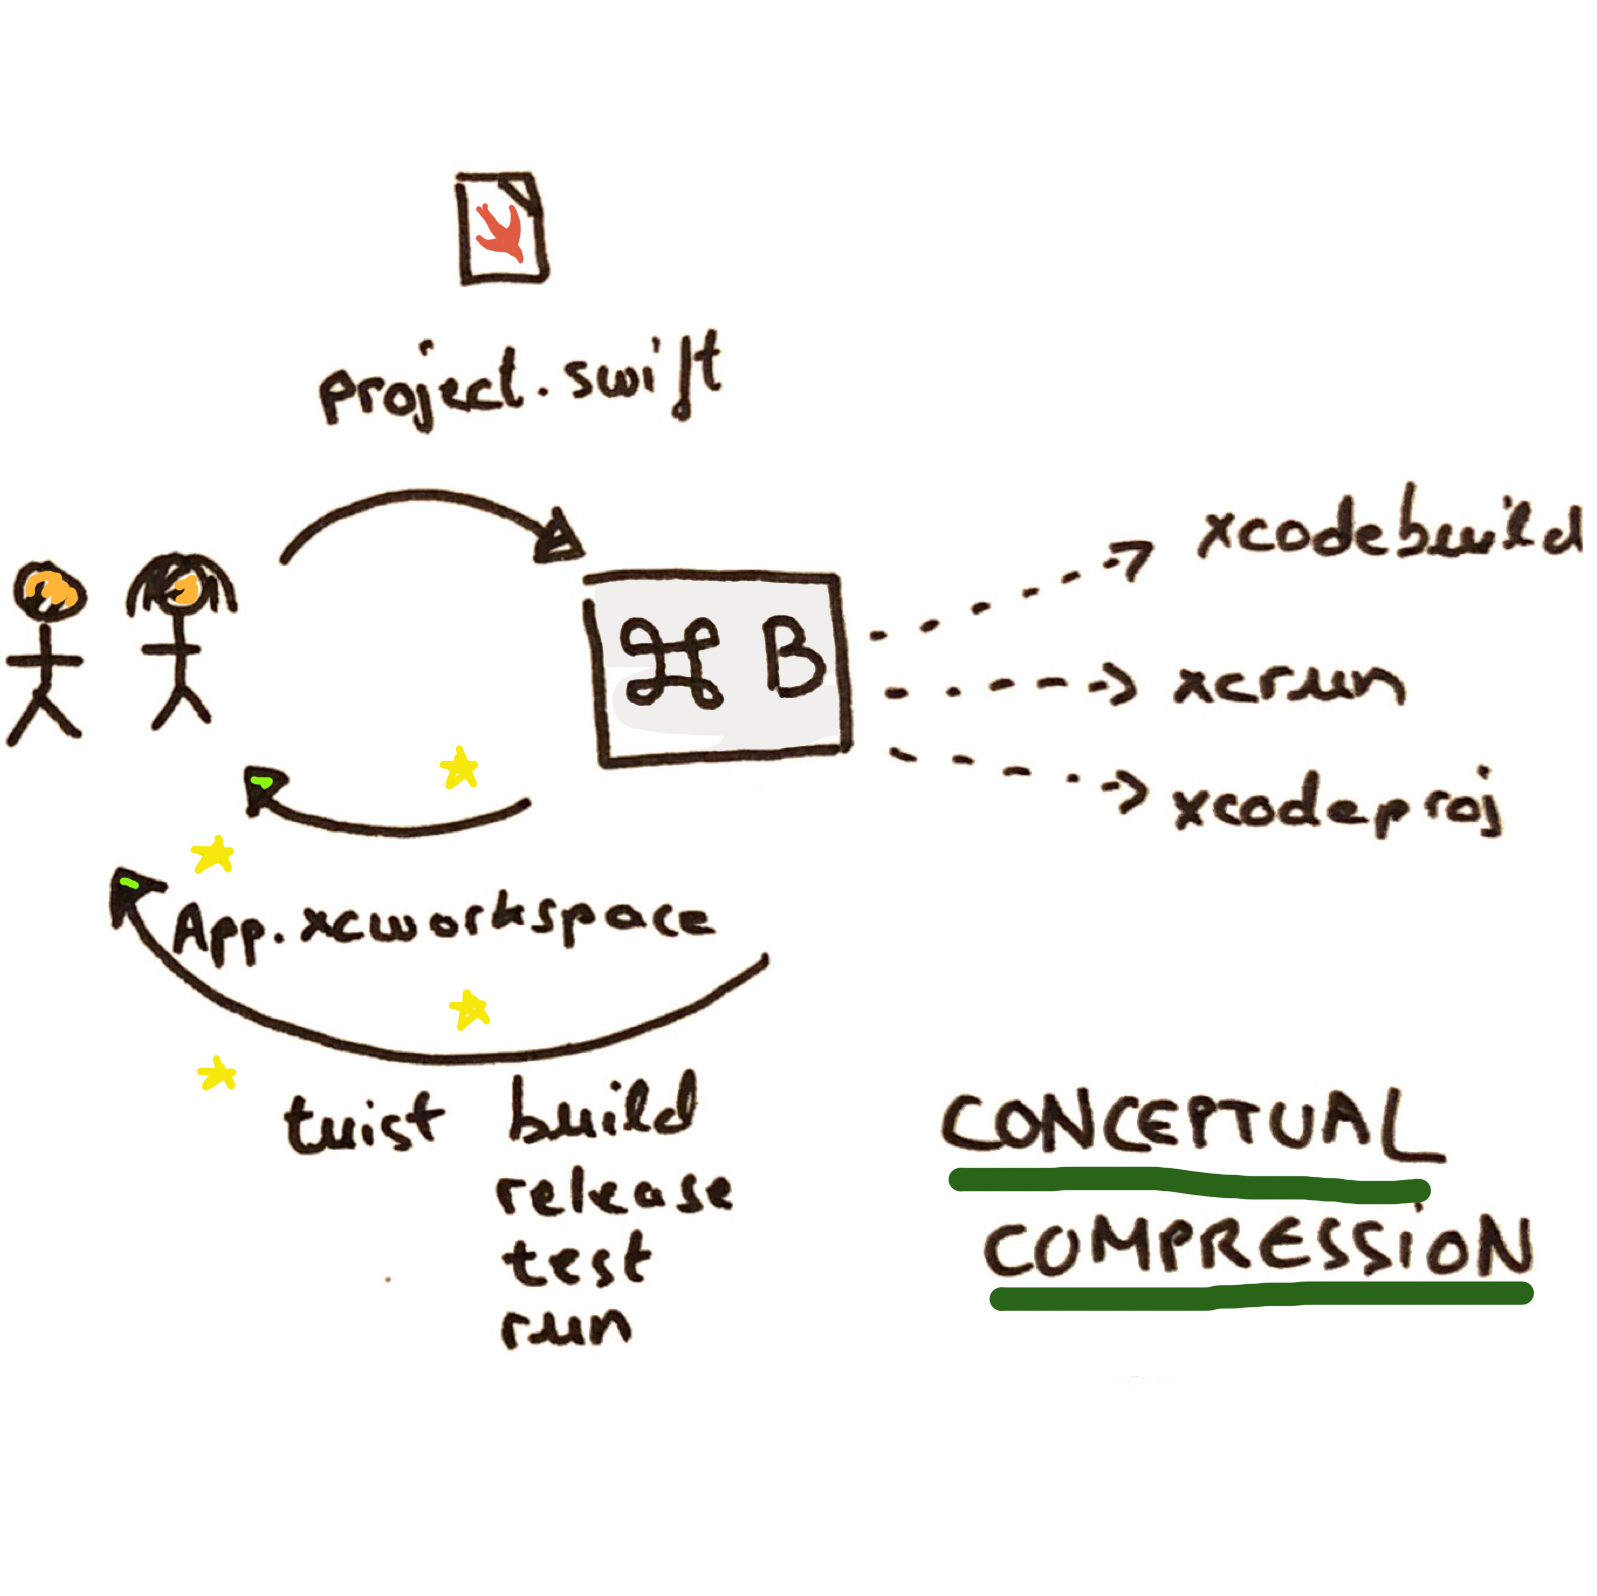 project.swift
⌘ B
xcodebuild
xcrun
xcodeproj
App.xcworkspace
tuist build
release
test
run
CONCEPTUAL
COMPRESSION